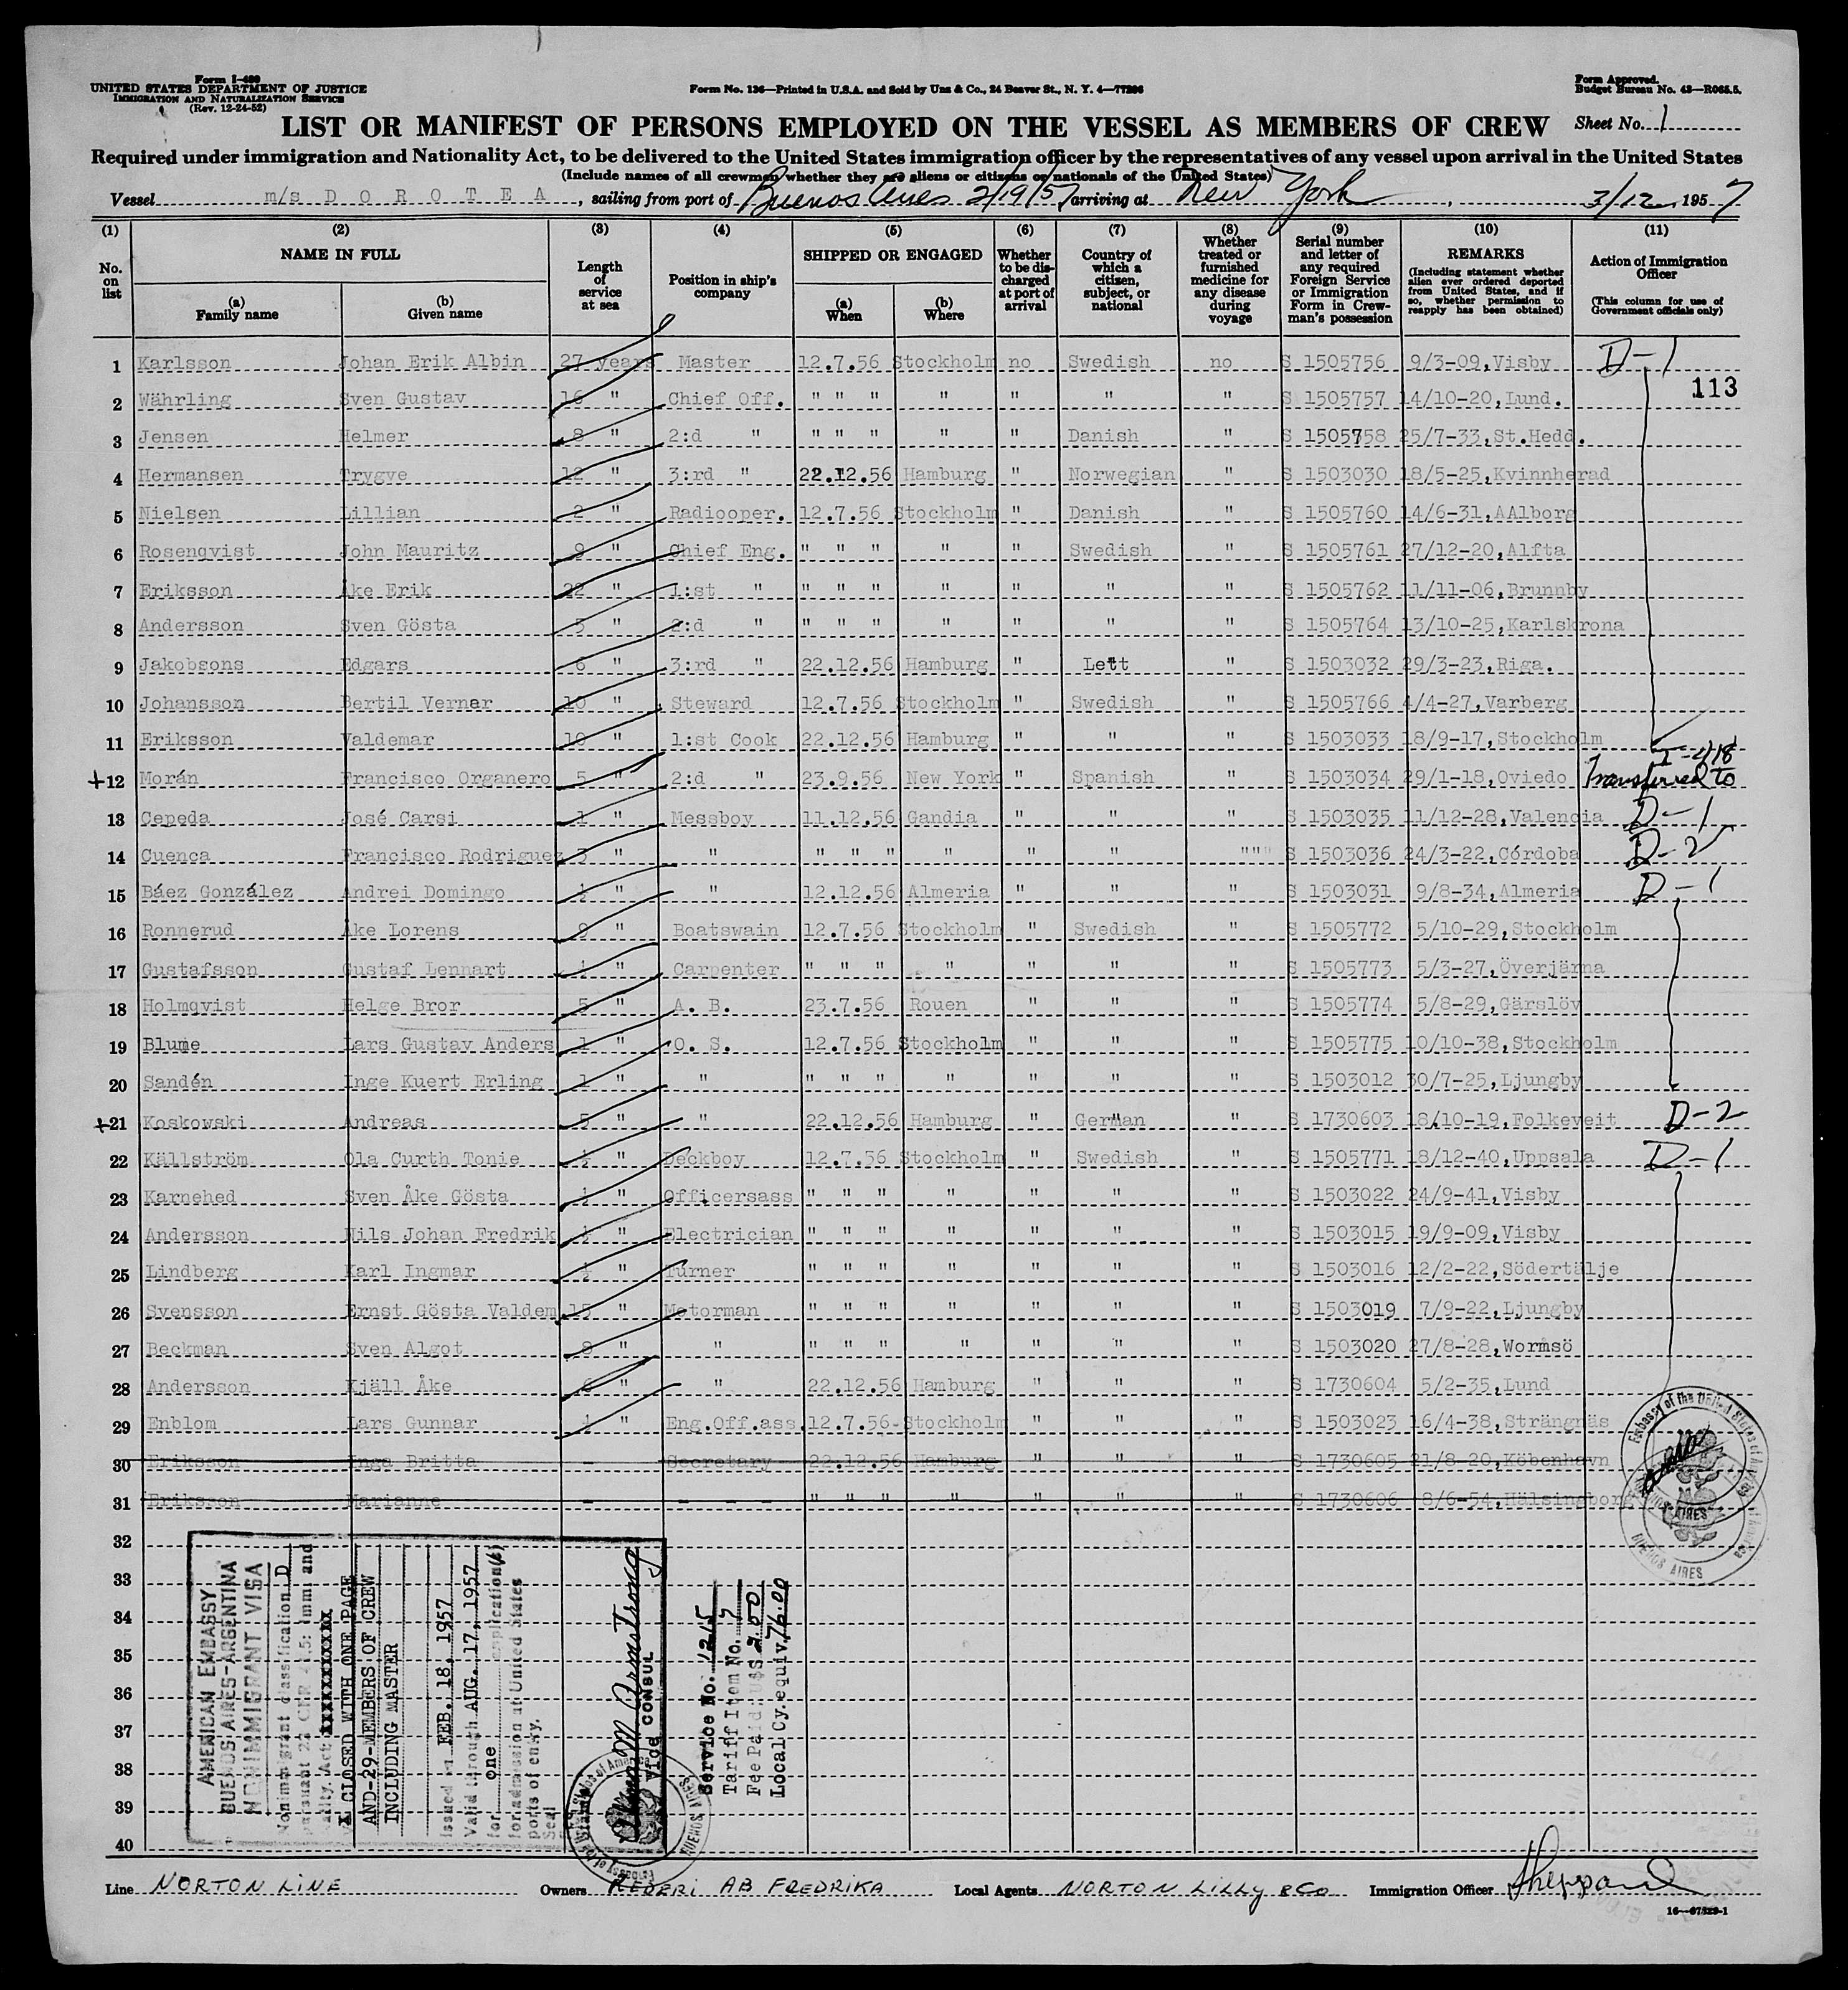 Form I-489
UNITED STATES DEPARTMENT OF JUSTICE
IMMIGRATION AND NATURALIZATION SERVICE
(Rev. 12-24-52)
Form No. 136—Printed in U.S.A. and Sold by Unz & Co., 24 Beaver St., N. Y. 4—77296
Form Approved.
Budget Bureau No. 43—R065.5.
LIST OR MANIFEST OF PERSONS EMPLOYED ON THE VESSEL AS MEMBERS OF CREW
Sheet No. 1
Required under immigration and Nationality Act, to be delivered to the United States immigration officer by the representatives of any vessel upon arrival in the United States
(Include names of all crewmen whether they are aliens or citizens or nationals of the United States)
Vessel m/s D O R O T E A, sailing from port of Buenos Aires 2/19/57 arriving at New York, 3/12 1957
(1) No. on list
(2) NAME IN FULL
(a) Family name
(b) Given name
(3) Length of service at sea
(4) Position in ship's company
(5) SHIPPED OR ENGAGED
(a) When
(b) Where
(6) Whether to be discharged at port of arrival
(7) Country of which a citizen, subject, or national
(8) Whether treated or furnished medicine for any disease during voyage
(9) Serial number and letter of any required Foreign Service or Immigration Form in Crewman's possession
(10) REMARKS
(Including statement whether alien ever ordered deported from United States, and if so, whether permission to reapply has been obtained)
(11) Action of Immigration Officer
(This column for use of Government officials only)
1 Karlsson Johan Erik Albin 27 years Master 12.7.56 Stockholm no Swedish no S 1505756 9/3-09,Visby D-1
113
2 Währling Sven Gustav 16 " Chief Off. " " " " " " " S 1505757 14/10-20,Lund.
3 Jensen Helmer 8 " 2:d " " " " " " Danish " S 1505758 25/7-33,St.Hedd.
4 Hermansen Trygve 12 " 3:rd " 22.12.56 Hamburg " Norwegian " S 1503030 18/5-25,Kvinnherad
5 Nielsen Lillian 2 " Radiooper. 12.7.56 Stockholm " Danish " S 1505760 14/6-31,AAlborg
6 Rosenqvist John Mauritz 9 " Chief Eng. " " " " " Swedish " S 1505761 27/12-20,Alfta
7 Eriksson Åke Erik 22 " 1:st " " " " " " " " S 1505762 11/11-06,Brunnby
8 Andersson Sven Gösta 5 " 2:d " " " " " " " " S 1505764 13/10-25,Karlskrona
9 Jakobsons Edgars 6 " 3:rd " 22.12.56 Hamburg " Lett " S 1503032 29/3-23,Riga.
10 Johansson Bertil Verner 10 " Steward 12.7.56 Stockholm " Swedish " S 1505766 4/4-27,Varberg
11 Eriksson Valdemar 10 " 1:st Cook 22.12.56 Hamburg " " " S 1503033 18/9-17,Stockholm
+12 Morán Francisco Organero 5 " 2:d " 23.9.56 New York " Spanish " S 1503034 29/1-18,Oviedo Transferred to I-418
13 Cepeda José Carsi 1 " Messboy 11.12.56 Gandia " " " S 1503035 11/12-28,Valencia D-1
14 Cuenca Francisco Rodriguez 3 " " " " " " " " """ S 1503036 24/3-22,Córdoba D-2
15 Báez González Andrei Domingo ½ " " 12.12.56 Almeria " " " S 1503031 9/8-34,Almeria D-1
16 Ronnerud Åke Lorens 9 " Boatswain 12.7.56 Stockholm " Swedish " S 1505772 5/10-29,Stockholm
17 Gustafsson Gustaf Lennart " Carpenter " " " " " " " S 1505773 5/3-27,Överjärna
18 Holmqvist Helge Bror 5 " A. B. 23.7.56 Rouen " " " S 1505774 5/8-29,Gärslöv
19 Blume Lars Gustav Anders 1 " O. S. 12.7.56 Stockholm " " " S 1505775 10/10-38,Stockholm
20 Sandén Inge Kuert Erling 1 " " " " " " " " " S 1503012 30/7-25,Ljungby
+21 Koskowski Andreas 5 " " 22.12.56 Hamburg " German " S 1730603 18/10-19,Folkeveit D-2
22 Källström Ola Curth Tonie " Deckboy 12.7.56 Stockholm " Swedish " S 1505771 18/12-40,Uppsala D-1
23 Karnehed Sven Åke Gösta " Officersass " " " " " " " S 1503022 24/9-41,Visby
24 Andersson Nils Johan Fredrik " Electrician " " " " " " " S 1503015 19/9-09,Visby
25 Lindberg Karl Ingmar " Turner " " " " " " " S 1503016 12/2-22,Södertälje
26 Svensson Ernst Gösta Valdem 15 " Motorman " " " " " " " S 1503019 7/9-22,Ljungby
27 Beckman Sven Algot 8 " " " " " " " " " S 1503020 27/8-28,Wormsö
28 Andersson Kjäll Åke 6 " " 22.12.56 Hamburg " " " S 1730604 5/2-35,Lund
29 Enblom Lars Gunnar " Eng.Off.ass. 12.7.56-Stockholm " " " S 1503023 16/4-38,Strängnäs
30 Eriksson Inga Britta - Secretary 22.12.56 Hamburg " " " S 1730605 21/8-20,Köbenhavn
31 Eriksson Marianne - - - - " " " " " " " S 1730606 8/6-54,Hälsingborg
Embassy of the United States of America
BUENOS AIRES
32
33
34
35
36
37
38
39
40
AMERICAN EMBASSY
BUENOS AIRES-ARGENTINA
NONIMMIGRANT VISA
Nonimmigrant classification D
pursuant 22 CFR 41.5: Immi and
ality. Act XXXXXXXXXX
X CLOSED WITH ONE PAGE
AND-29-MEMBERS OF CREW
INCLUDING MASTER
Issued on FEB. 18, 1957
Valid through AUG. 17, 1957
for one application(s)
for admission at United States
ports of entry.
Seal
VICE CONSUL
Embassy of the United States of America
BUENOS AIRES
Service No. 1215
Tariff Item No. 7
Fee Paid: U$S 2.00
Local Cy.equiv. 76.00
Line NORTON LINE Owners REDERI AB FREDRIKA Local Agents NORTON LILLY & Co Immigration Officer Sheppard
16—67529-1